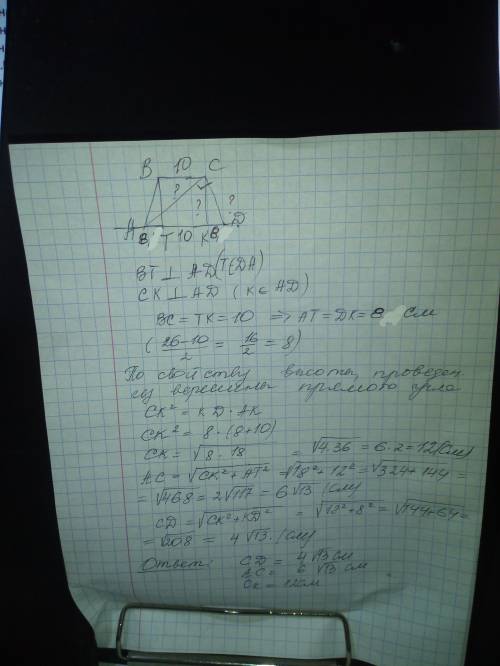 В 10 С
? ? ?
А 8 Т 10 К 8 D
BT ⊥ AD (T∈DA)
CK ⊥ AD (K ∈ AD)
BC = TK = 10 ⇒ AT = DK = 8 см
( (26-10)/2 = 16/2 = 8 )
По свойству высоты, проведен.
из вершины прямого угла
CK² = KD · AK
CK² = 8 · (8+10)
CK = √8 · 18 = √4·36 = 6·2 = 12 (см)
AC = √CK² + AT² = √18² + 12² = √324 + 144 =
= √468 = 2√117 = 6√13 (см)
CD = √CK² + KD² = √12² + 8² = √144+64 =
= √208 = 4√13 (см)
Ответ: CD = 4√13 см
AC = 6√13 см
CK = 12 см